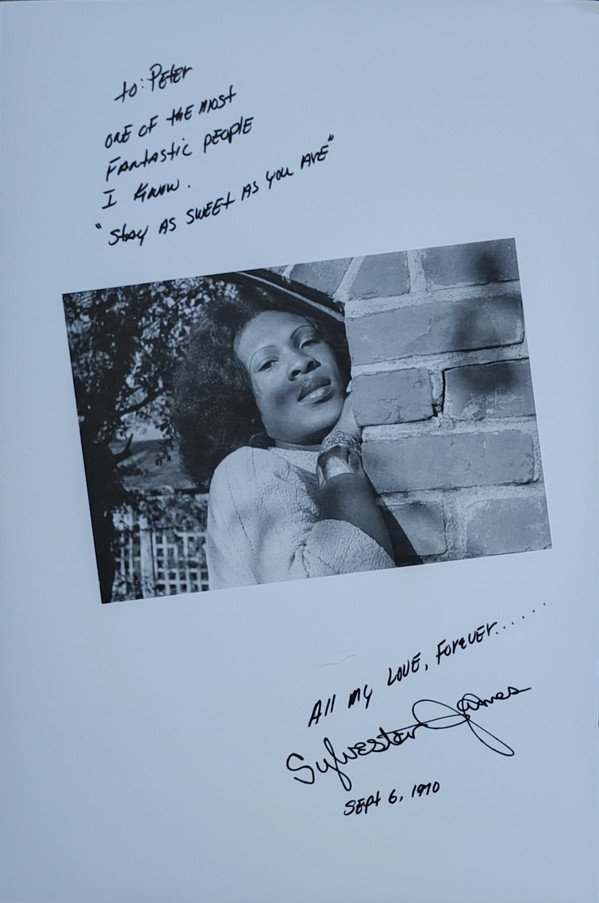 to: Peter
ONE OF THE MOST
FANTASTIC PEOPLE
I KNOW.
"STAY AS SWEET AS YOU ARE"
All my LOVE, FOREVER......
Sylvester James
SEPT 6, 1970